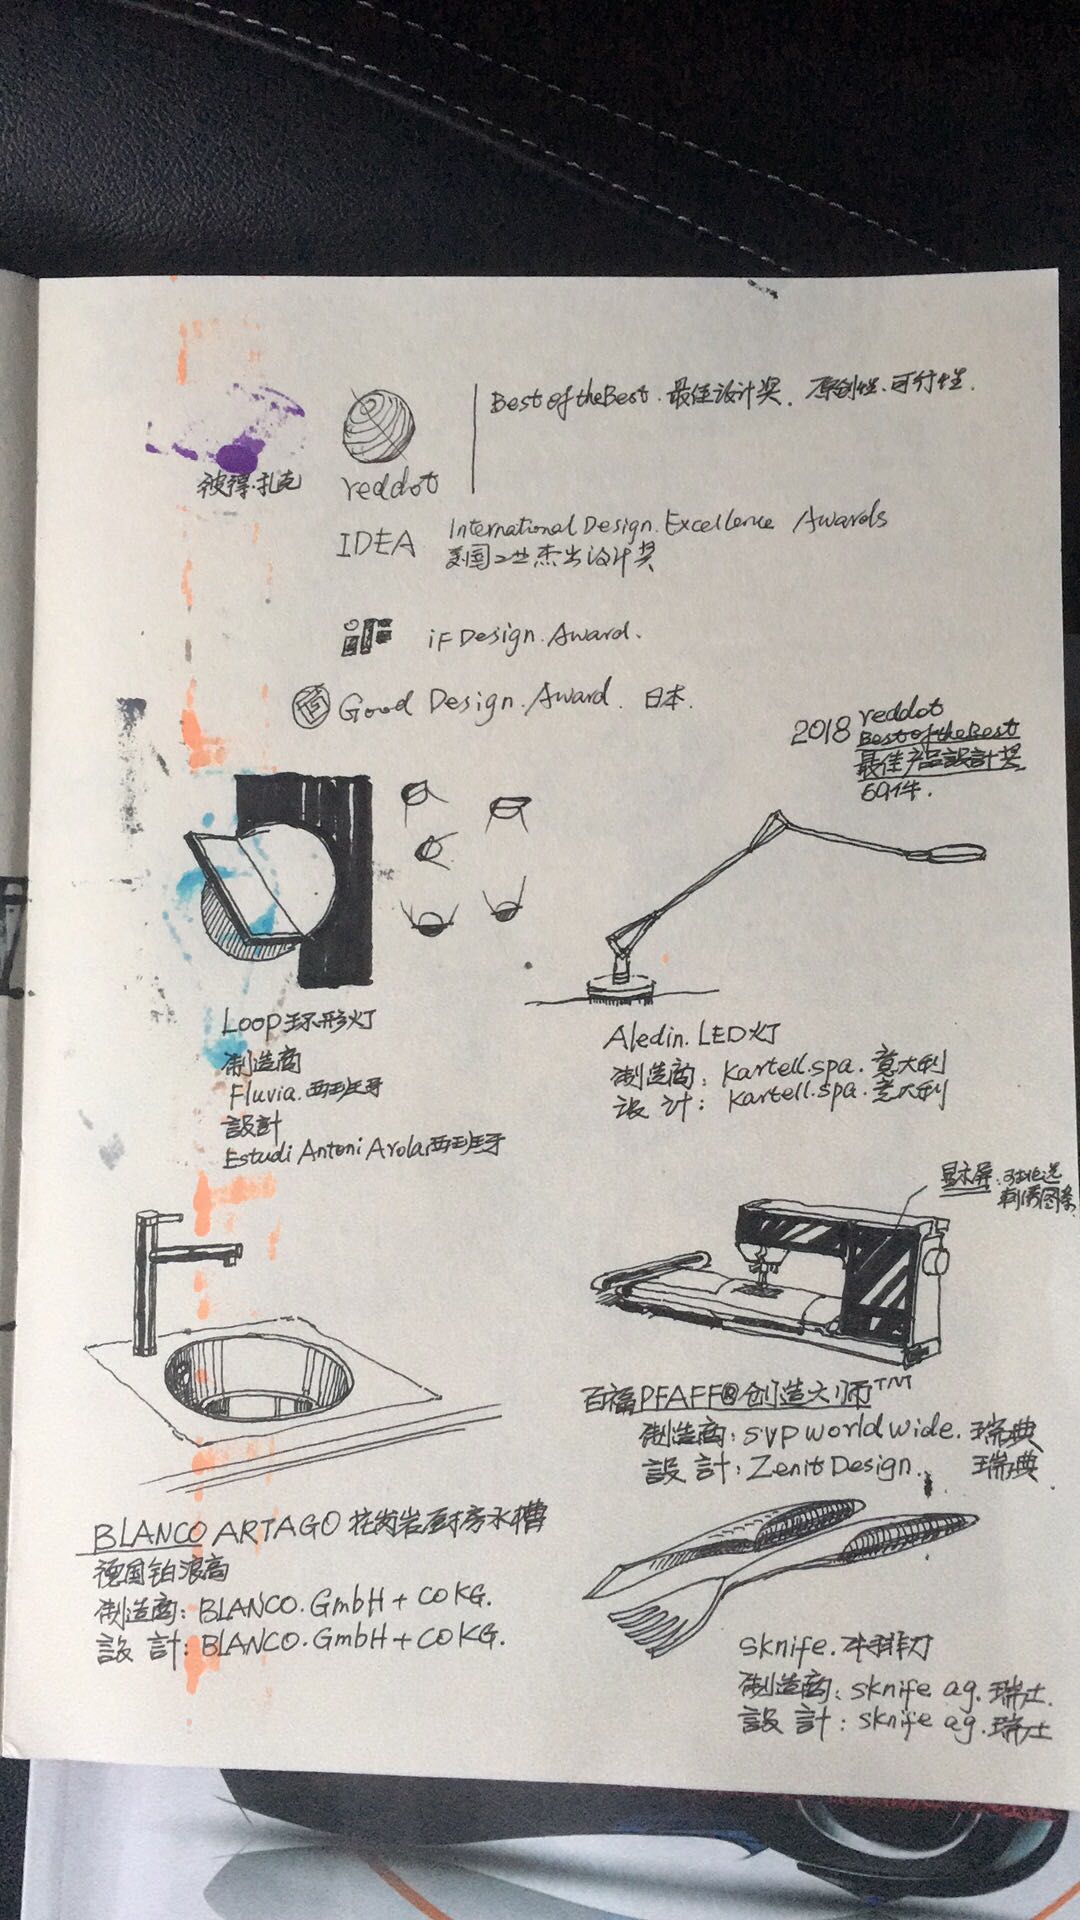 Best of the Best. 最佳设计奖. 原创性.可行性.
彼得.扎克
reddot
IDEA International Design. Excellence Awards
美国工业杰出设计奖
iF iF Design. Award.
Good Design. Award. 日本.
2018 reddot
Best of the Best
最佳产品設計奖
69件.
Loop环形灯
制造商
Fluvia. 西班牙
設計
Estudi Antoni Arola西班牙
Aledin. LED灯
制造商: Kartell.spa. 意大利
设计: Kartell.spa. 意大利
显示屏. 可批选
刺绣图案.
百福PFAFF®创造大师™
制造商: SVP world wide. 瑞典
設計: Zenit Design. 瑞典
BLANCO ARTAGO 花岗岩厨房水槽
德国铂浪高
制造商: BLANCO. GmbH + CO KG.
設計: BLANCO. GmbH + CO KG.
sknife. 牛排刀
制造商: sknife ag. 瑞士.
設計: sknife ag. 瑞士